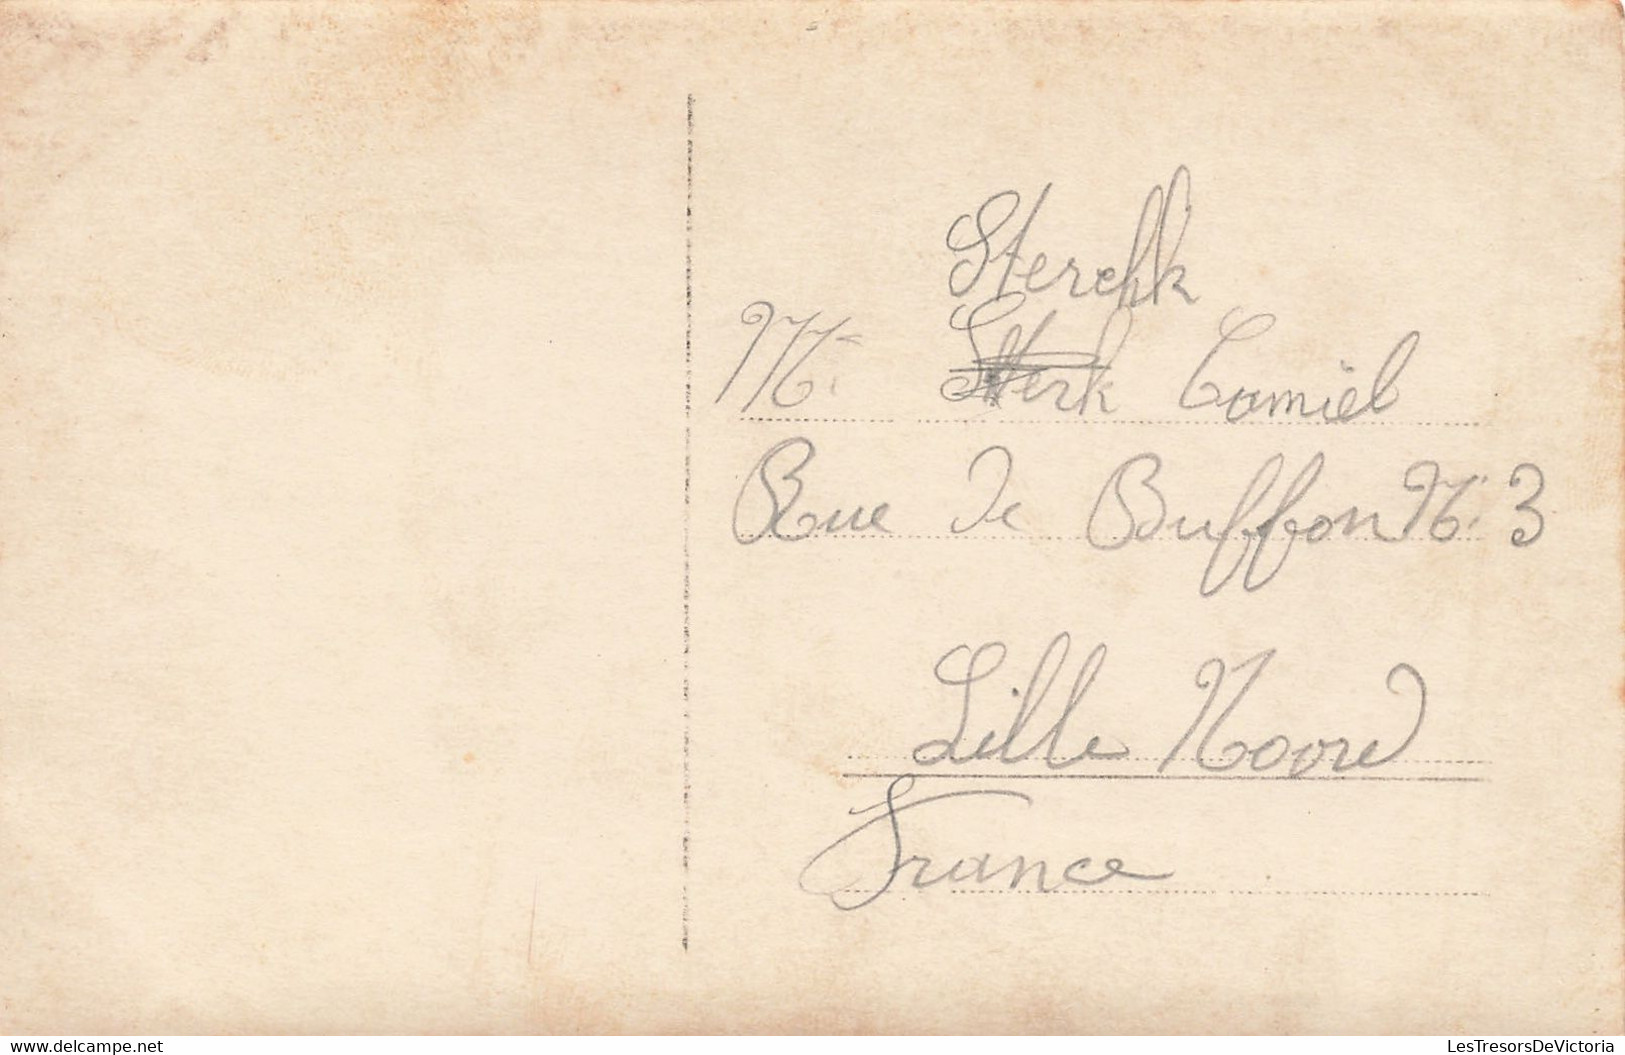 Sterchk
Mr Sterk Camiel
Rue De Buffon Nr 3
Lille Noord
France
www.delcampe.net
LesTresorsDeVictoria